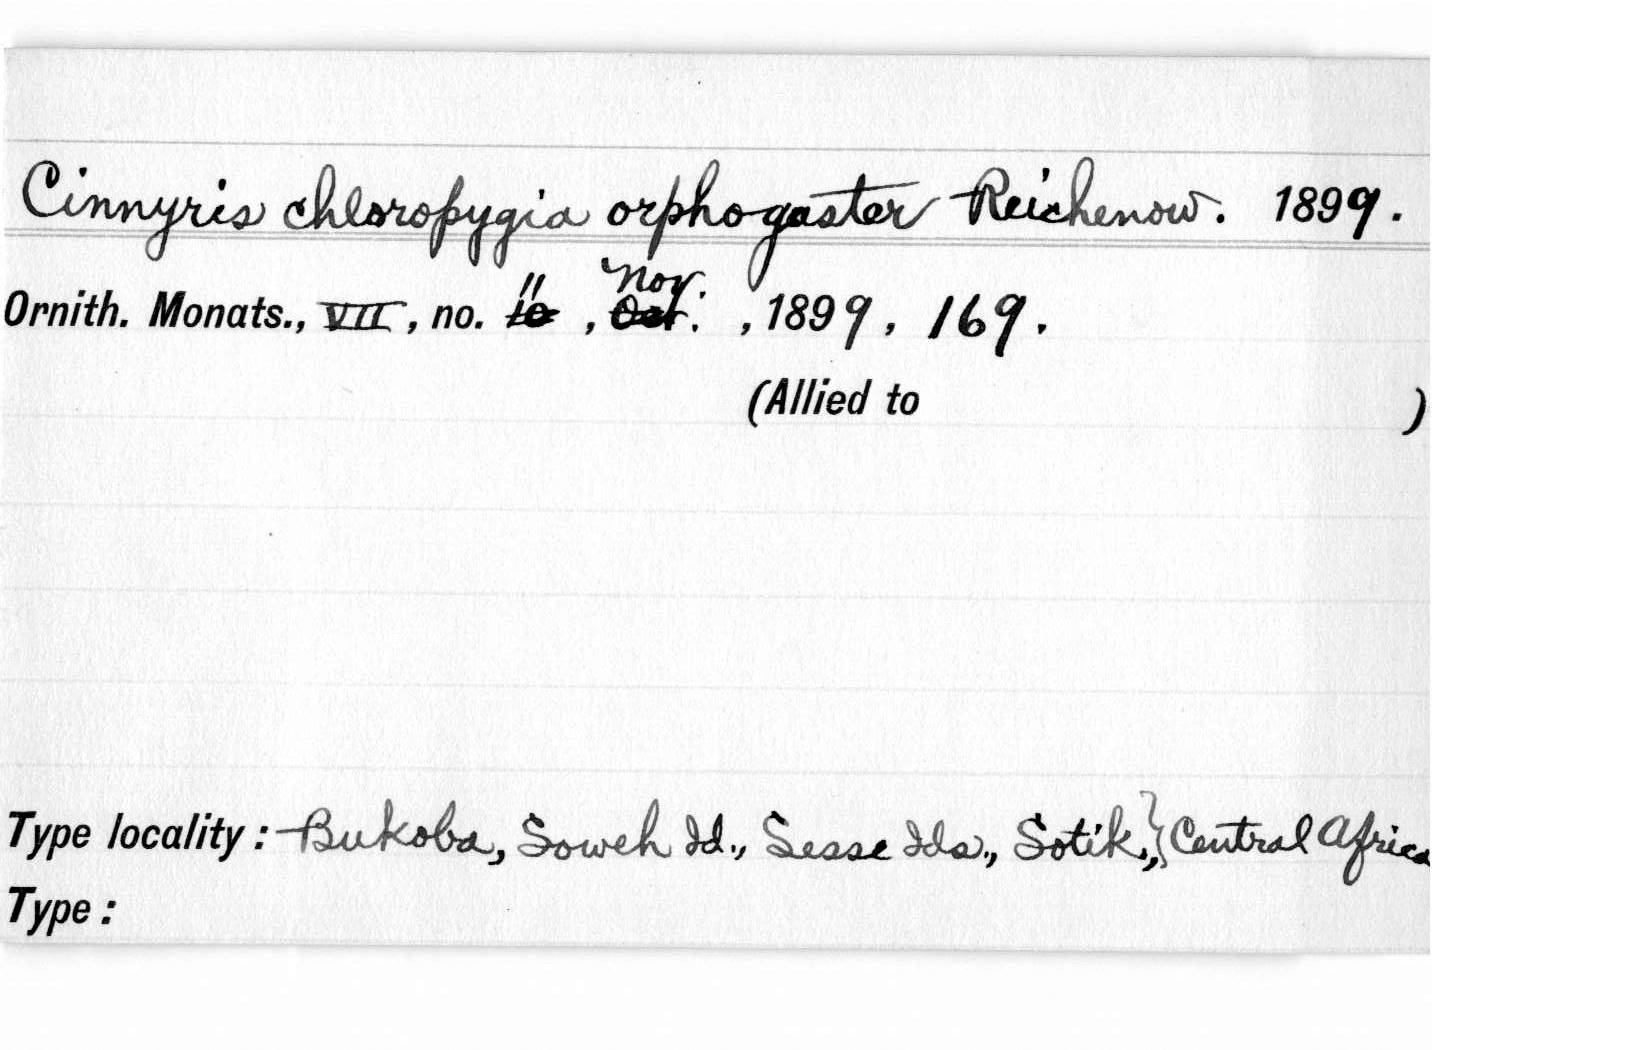 Cinnyris chloropygia orphogaster Reichenow. 1899.
11 Nov.
Ornith. Monats., VII, no. 10, Oct. , 1899, 169.
(Allied to )
Type locality: Bukoba, Soweh Id., Sesse Ids., Sotik,} Central Africa
Type: